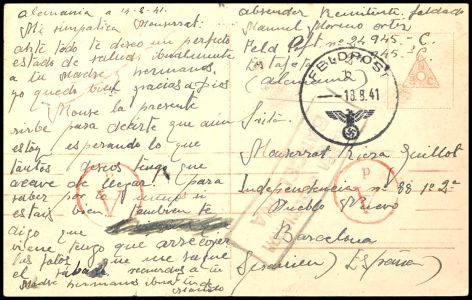 Alemania a 14-8-41.
Mi simpatica Monserrat:
ante todo te deseo un perfecto
estado de salud igualmente
a tu Madre y hermanos,
yo quedo bien gracias a Dios
Monse la presente
sirbe para decirte que aun
estoy esperando lo que
tantos deseos tengo que
acave de llegar! (para
saber
estais bien tambien te
digo que
viene tengo que arreglar
las fotos que me saque
el sabado recuerdos a tu
Madre hermanos
absender Remitente: soldado
Manuel Moreno Ortiz
Feld Post. nº 24.945-C
Estafeta
(Alemania)
FELDPOST
18.8.41
Srita:
Monserrat Riera Guillot
Independencia nº 88 1º 2ª
Pueblo Nuevo
Barcelona
(España)